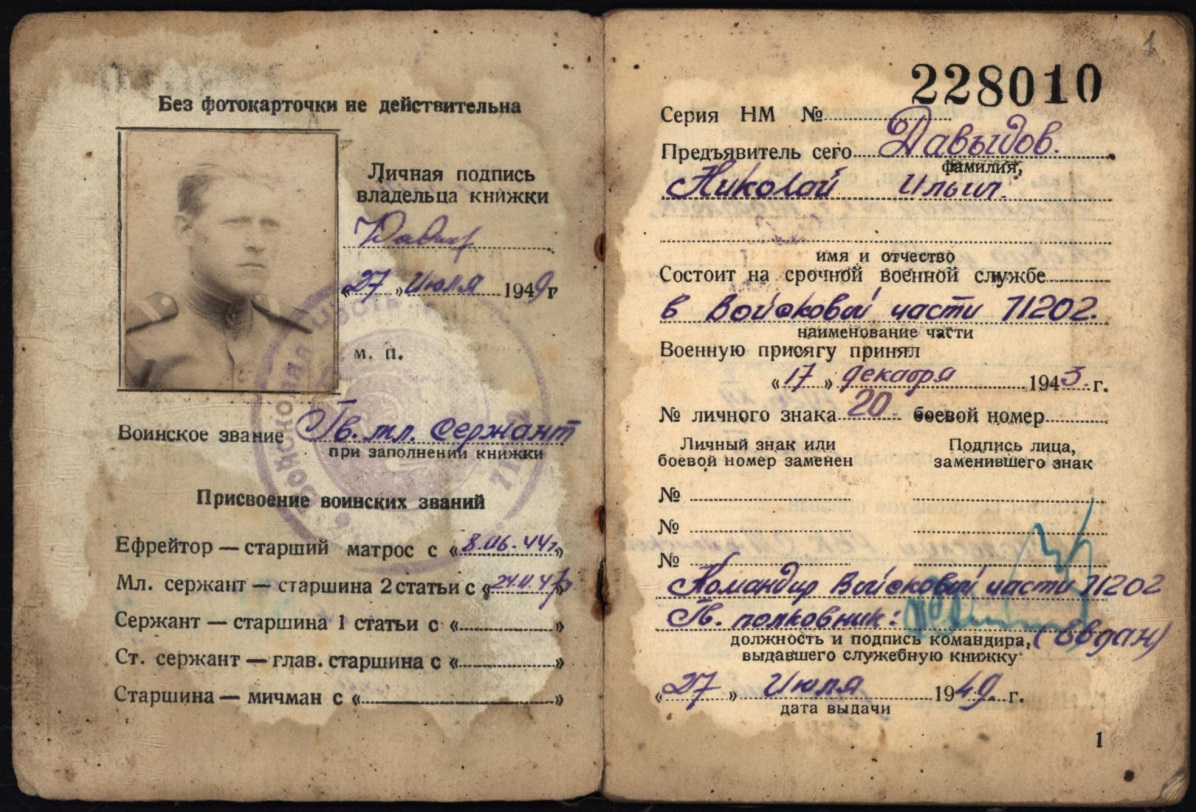 Без фотокарточки не действительна
Личная подпись
владельца книжки
«27» Июля 1949 г
м. п.
Воинское звание Гв. мл. сержант
при заполнении книжки
Присвоение воинских званий
Ефрейтор — старший матрос с «8.06.44г.»
Мл. сержант — старшина 2 статьи с «
Сержант — старшина 1 статьи с «»
Ст. сержант — глав. старшина с «»
Старшина — мичман с «»
ВОЙСКОВАЯ ЧАСТЬ 71202
1
228010
Серия НМ №
Предъявитель сего Давыдов.
фамилия,
Николай Ильич.
имя и отчество
Состоит на срочной военной службе
в Войсковой части 71202.
наименование части
Военную присягу принял
«17» декабря 1943. г.
№ личного знака 20 боевой номер
Личный знак или
боевой номер заменен
Подпись лица,
заменившего знак
№
№
№
Командир Войсковой части 71202
Гв. полковник: (Овдан)
должность и подпись командира,
выдавшего служебную книжку
«27» Июля 1949. г.
дата выдачи
1